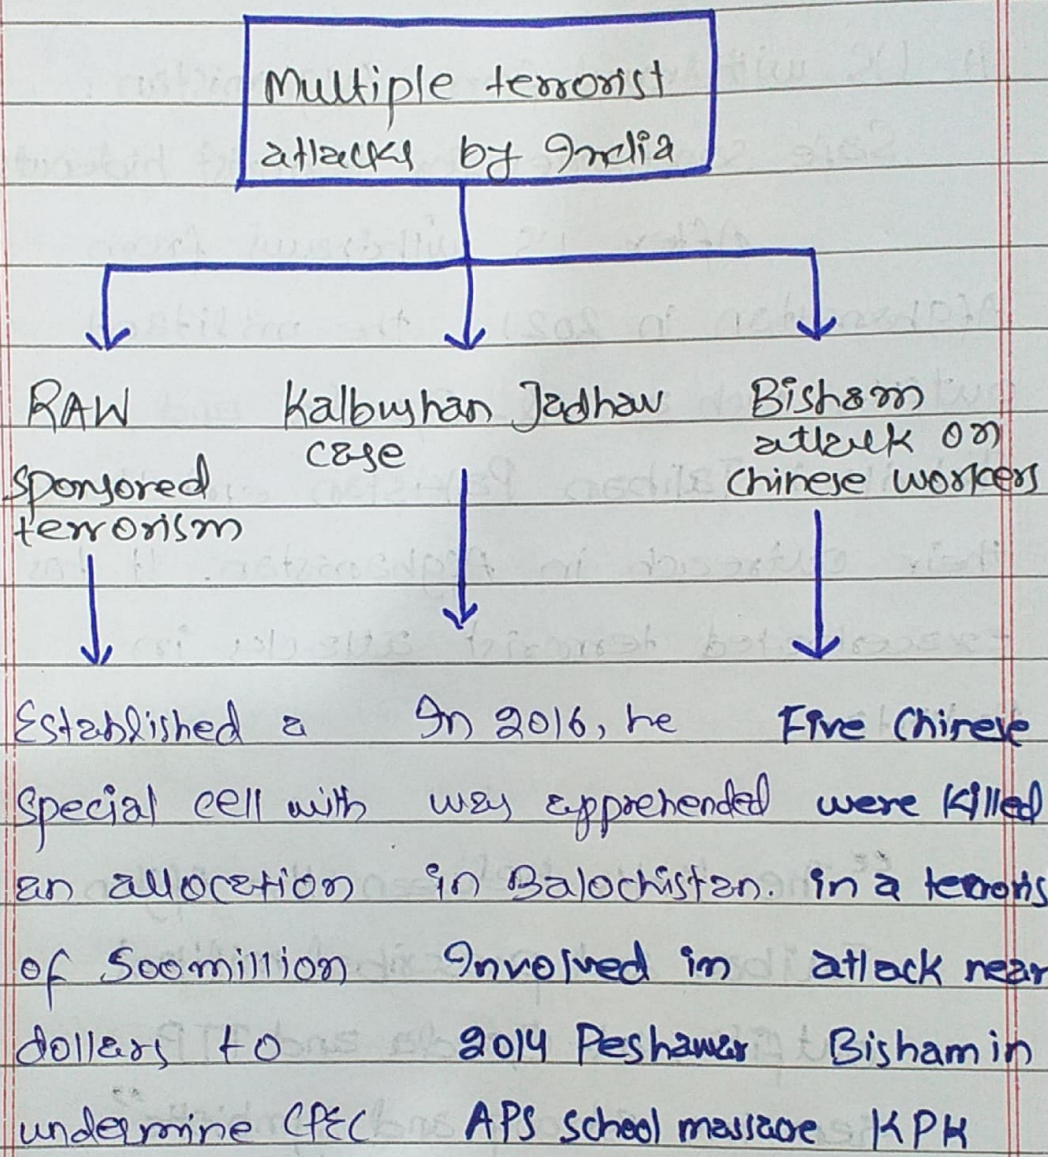 Multiple terrorist
attacks by India
RAW
sponsored
terrorism
Kalbushan Jadhav
case
Bisham
attack on
Chinese workers
Established a
special cell with
an allocation
of 500 million
dollars to
undermine CPEC
In 2016, he
was apprehended
in Balochistan.
Involved in
2014 Peshawar
APS school massacre
Five Chinese
were killed
in a terroris
attack near
Bisham in
KPK